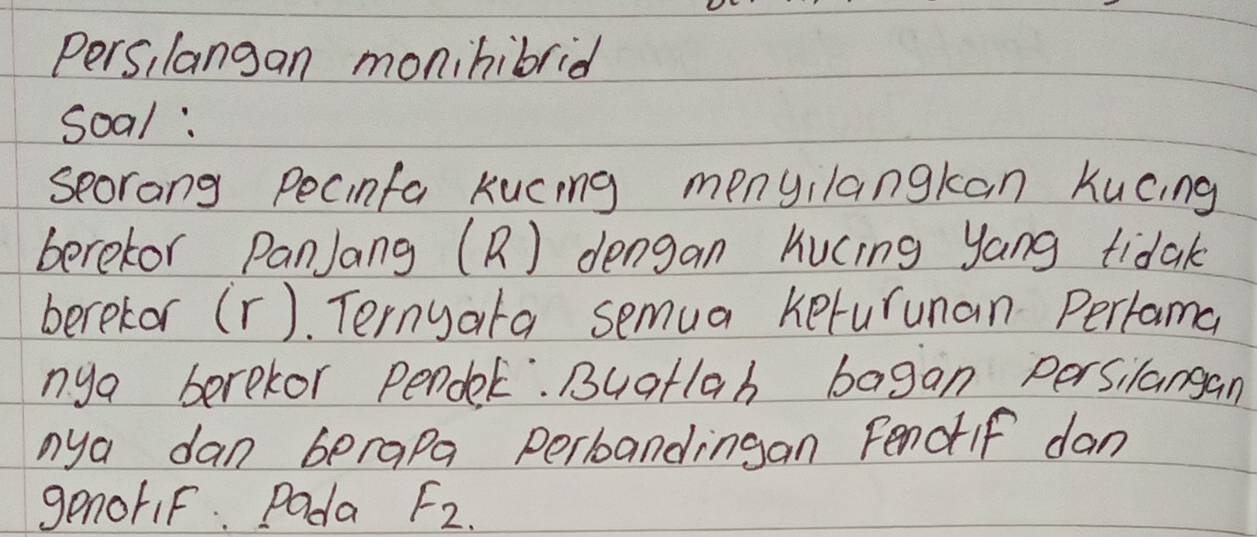 Persilangan monihibrid
Soal :
Seorang Pecinta Kucing menyilangkan Kucing
berekor Panjang (R) dengan Kucing yang tidak
berekor (r). Ternyata semua Keturunan Pertama
nya berekor Pendek. Buatlah bagan Persilangan
nya dan berapa Perbandingan Fenotif dan
genotif. Pada F2.